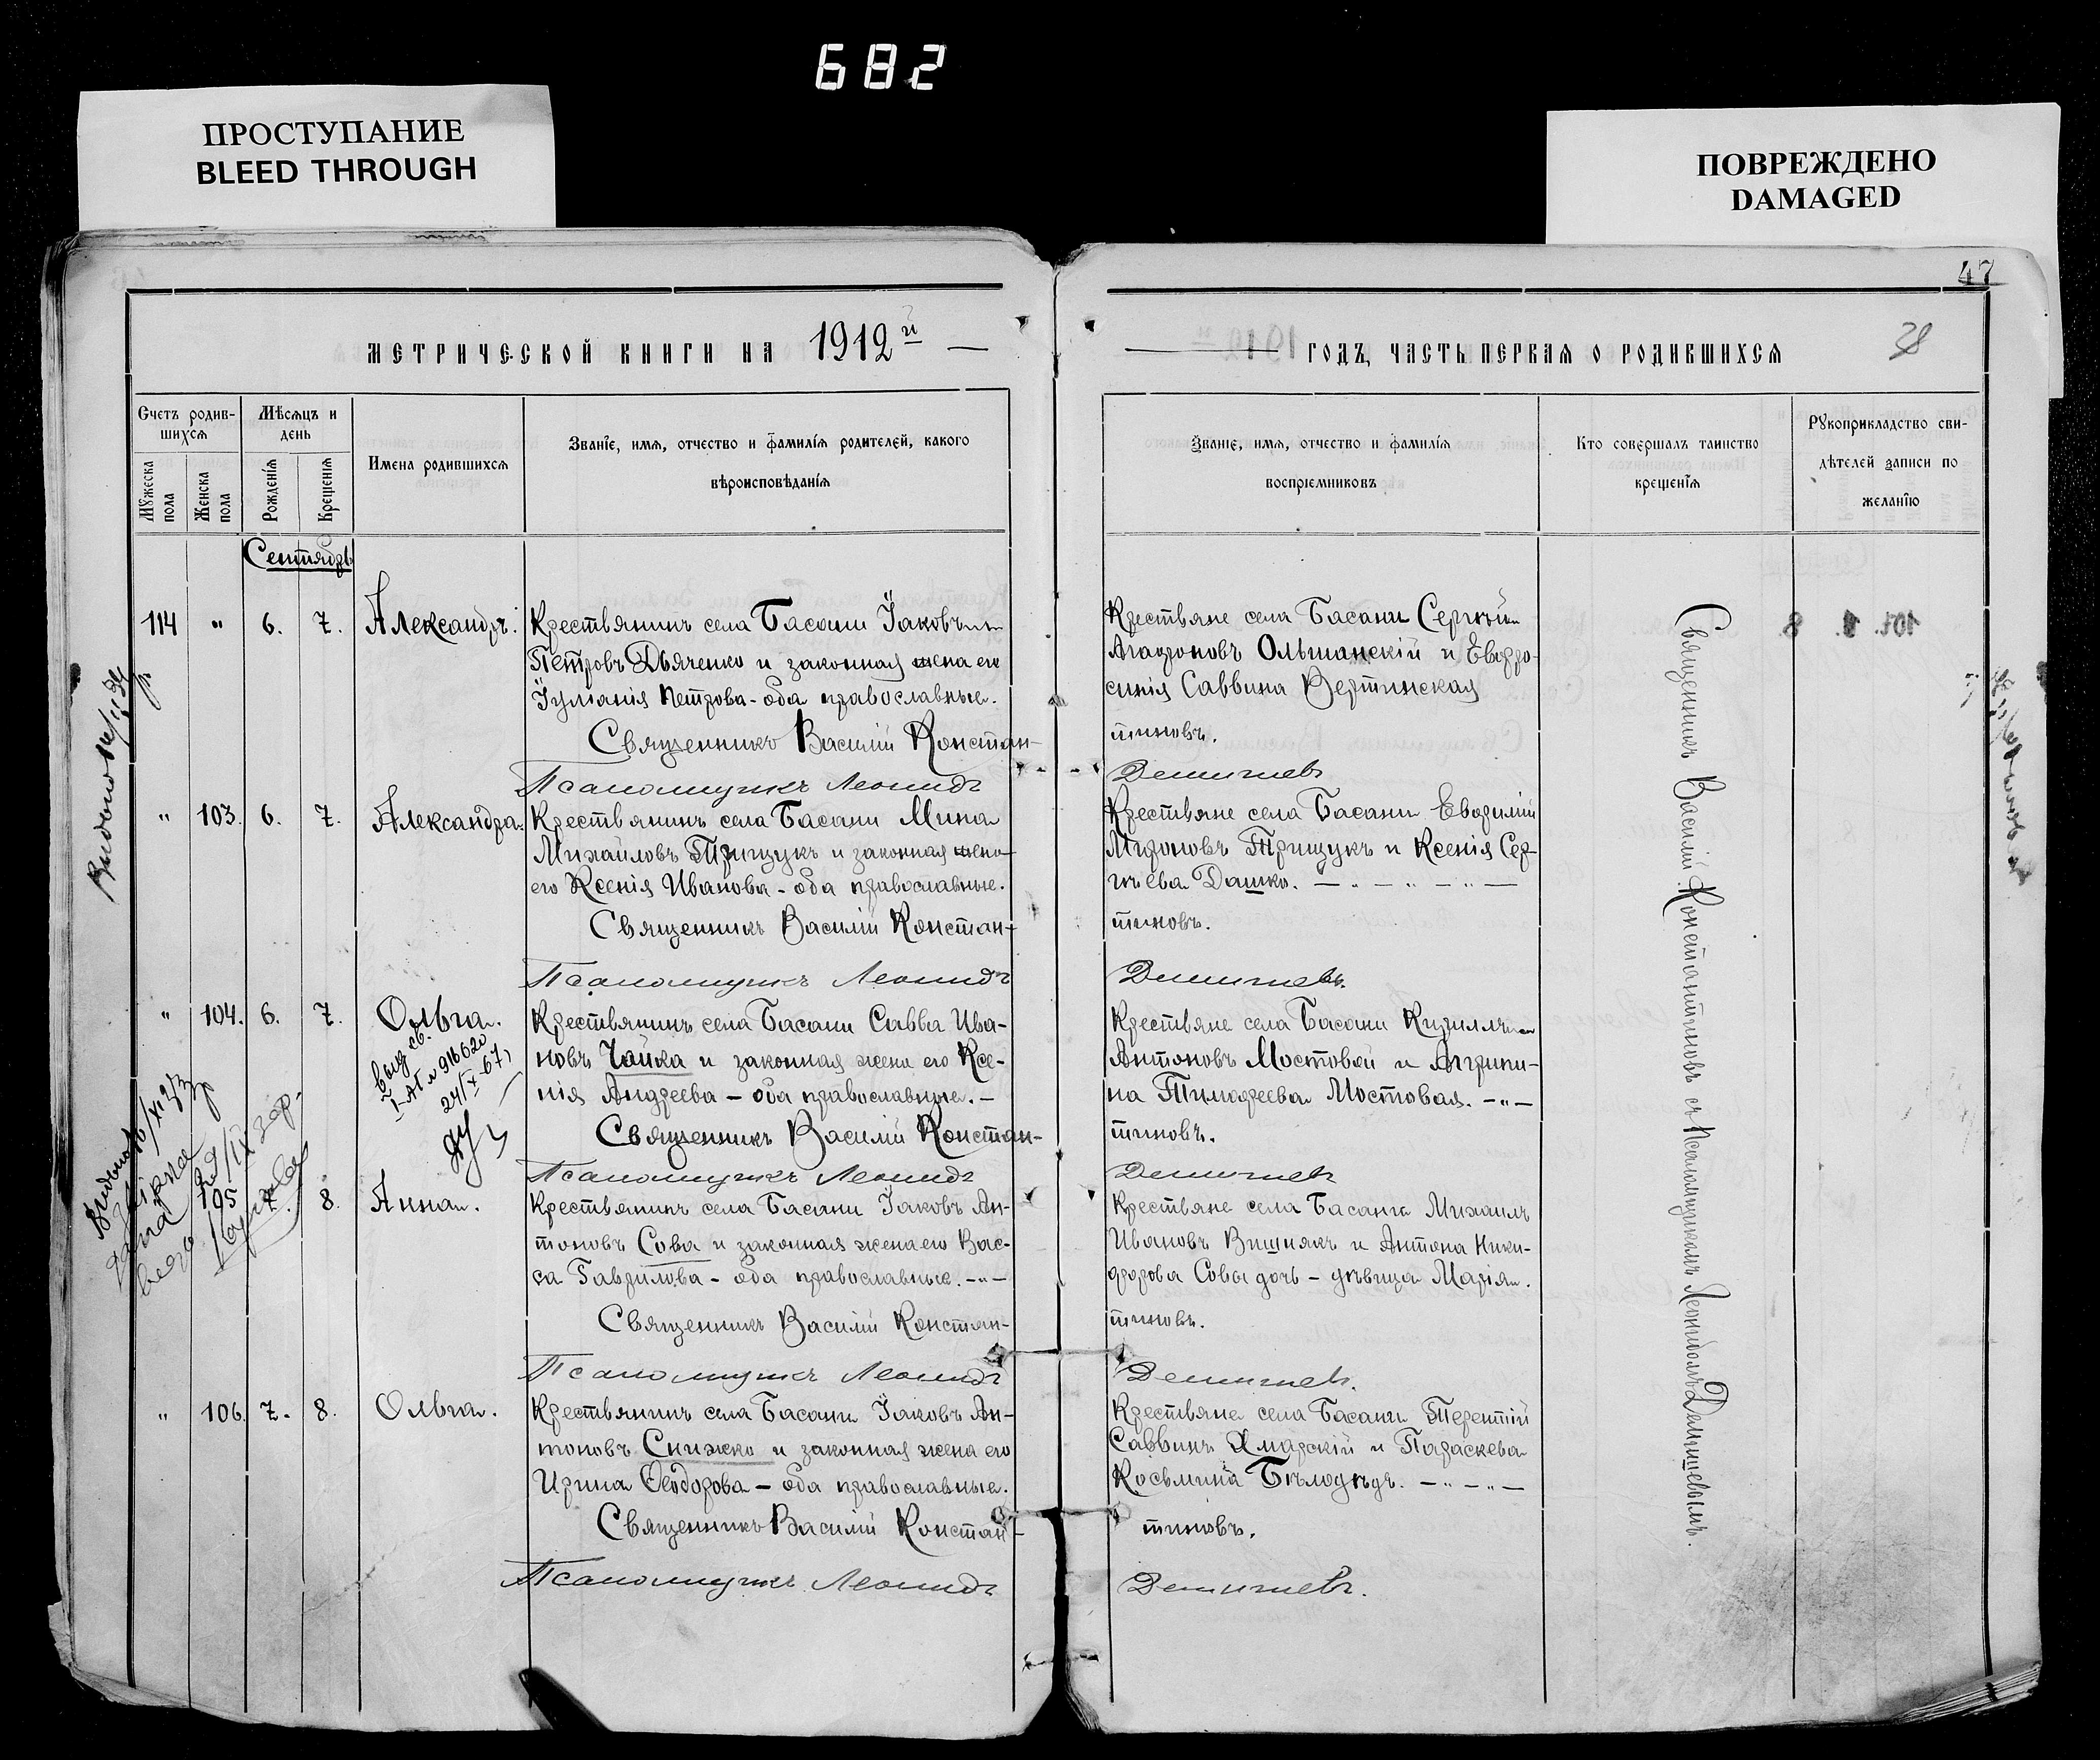 682
ПРОСТУПАНИЕ
BLEED THROUGH
ПОВРЕЖДЕНО
DAMAGED
47
38
МЕТРИЧЕСКОЙ КНИГИ НА 1912й
ГОДЪ, ЧАСТЬ ПЕРВАЯ О РОДИВШИХСЯ
Счетъ родив-
шихся
Мѣсяцъ и
день
Мужеска
пола
Женска
пола
Рожденія
Крещенія
Имена родившихся
Званіе, имя, отчество и фамилія родителей, какого
вѣроисповѣданія
Званіе, имя, отчество и фамилія
воспріемниковъ
Кто совершалъ таинство
крещенія
Рукоприкладство сви-
дѣтелей записи по
желанію
Сентябрь
114 " 6. 7. Александръ.
Крестьянинъ села Басани Іаковъ
Петровъ Дьяченко и законная жена его
Іуліанія Петрова - оба православные.
Священникъ Василій Констан-
Псаломщикъ Леонидъ
Крестьяне села Басани Сергѣй
Агафоновъ Ольшанскій и Евфро-
синія Саввина Вертинская
тиновъ.
Демишевъ
" 103. 6. 7. Александра.
Крестьянинъ села Басани Мина
Михайловъ Трищукъ и законная жена
его Ксенія Иванова - оба православные.
Священникъ Василій Констан-
Псаломщикъ Леонидъ
Крестьяне села Басани Евфимій
Мироновъ Трищукъ и Ксенія Сер-
гѣева Дашко.
тиновъ.
Демишевъ.
" 104. 6. 7. Ольга.
выд св.
I-АП № 916620
24/X-67
Крестьянинъ села Басани Савва Ива-
новъ Чайка и законная жена его Ксе-
нія Андреева - оба православные. -
Священникъ Василій Констан-
Псаломщикъ Леонидъ
Крестьяне села Басани Кириллъ
Антоновъ Мостовой и Агрипи-
на Тимофеева Мостовая. - " -
тиновъ.
Демишевъ
105 7. 8. Анна.
Крестьянинъ села Басани Іаковъ Ан-
тоновъ Сова и законная жена его Вас-
са Гаврилова - оба православные. - " -
Священникъ Василій Констан-
Псаломщикъ Леонидъ
Крестьяне села Басани Михаилъ
Ивановъ Вишнякъ и Антона Ники-
форова Совы дочь - дѣвица Марія.
тиновъ.
Демишевъ.
" 106. 7. 8. Ольга.
Крестьянинъ села Басани Іаковъ Ан-
тоновъ Снижко и законная жена его
Ирина Ѳеодорова - оба православные.
Священникъ Василій Констан-
Псаломщикъ Леонидъ
Крестьяне села Басани Терентій
Саввинъ Хмарскій и Параскева
Косьмина Бѣлодѣдъ. - " - " -
тиновъ.
Демишевъ.
Священникъ Василій Константиновъ съ Псаломщикомъ Леонидомъ Демишевымъ.